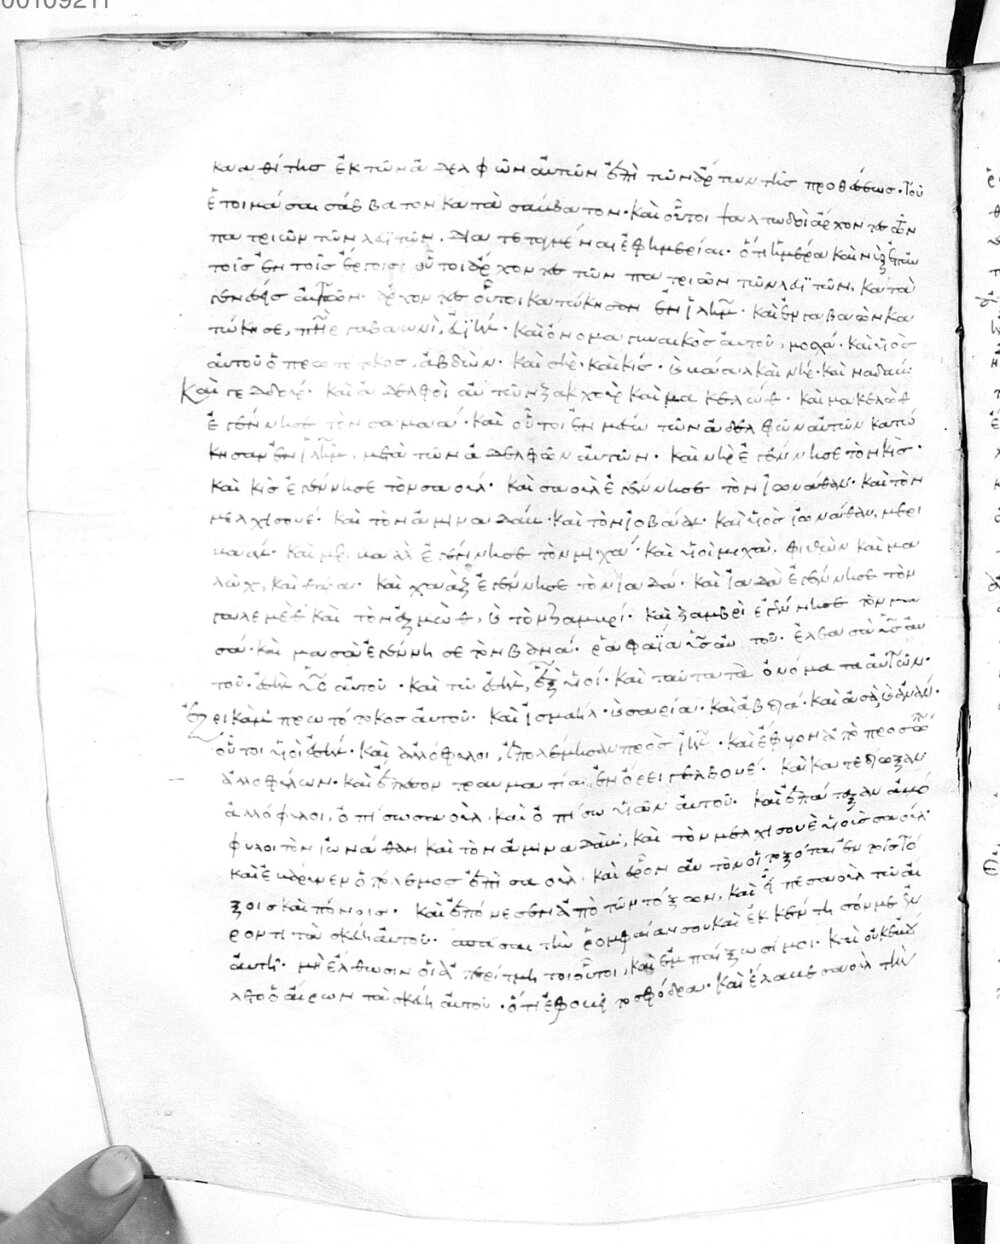 00109211
κααθίτης ἐκ τῶν ἀδελφῶν αὐτῶν ἐπὶ τῶν ἄρτων τῆς προθέσεως· τοῦ
ἑτοιμάσαι σάββατον κατὰ σάββατον· καὶ οὗτοι ψαλτωδοὶ ἄρχοντες τῶν
πατριῶν τῶν λευϊτῶν. διατεταγμέναι ἐφημερίαι· ὅτι ἡμέρα καὶ νὺξ ἐπ' αὐ
τοῖς ἐν τοῖς ἔργοις· οὗτοι ἄρχοντες τῶν πατριῶν τῶν λευϊτῶν, κατὰ
γενέσεις αὐτῶν· ἄρχοντες οὗτοι κατώκησαν ἐν ἰλημ· καὶ ἐν γαβαὼν κα
τώκησε, πηρ γαβαωνὶ, ἰεϊήλ· καὶ ὄνομα γυναικὸς αὐτοῦ, μοαχά· καὶ υἱὸς
αὐτοῦ ὁ πρωτότοκος, ἀβδὼν· καὶ σὴρ· καὶ κίς· καὶ νὴρ· καὶ ναδαὶμ·
καὶ γεδούρ· καὶ ἀδελφοὶ αὐτῶν ζακχοὺρ καὶ μακελώθ· καὶ μακελὼθ
ἐγέννησε τὸν σαμαά· καὶ οὗτοι ἐν μέσω τῶν ἀδελφῶν αὐτῶν κατώ
κησαν ἐν ἰλημ, μετὰ τῶν ἀδελφῶν αὐτῶν· καὶ νὴρ ἐγέννησε τὸν κίς·
καὶ κὶς ἐγέννησε τὸν σαούλ· καὶ σαοὺλ ἐγέννησε τὸν ἰωνάθαν· καὶ τὸν
μελχισουέ· καὶ τὸν ἀμιναδάμ· καὶ τὸν ἰοβαάλ· καὶ υἱὸς ἰωνάθαν, μερι
βαάλ· καὶ μεριβαὰλ ἐγέννησε τὸν μιχά· καὶ υἱοὶ μιχὰ, φιθὼν καὶ μα
λὼχ, καὶ θαρά· καὶ χαὰζ ἐγέννησε τὸν ἰαδά· καὶ ἰαδὰ ἐγέννησε τὸν
γαλεμὲθ καὶ τὸν ἀζμὼθ, καὶ τὸν ζαμυρί· καὶ ζαμβρὶ ἐγέννησε τὸν μα
σά· καὶ μασὰ ἐγέννησε τὸν βανά· ῥαφαΐα υς αὐτοῦ· ἐλεασὰ υς αὐ
τοῦ· ἐσὴλ υς αὐτοῦ· καὶ τῶ ἐσὴλ, ἓξ υἱοί· καὶ ταῦτα τὰ ὀνόματα αὐτῶν·
ἐζρικὰμ πρωτότοκος αὐτοῦ· καὶ ἰσμαήλ· καὶ σαρία· καὶ ἀβδιά· καὶ ἀσὰ, καὶ ἀνάν·
οὗτοι υἱοὶ ἐσήλ· καὶ ἀλλόφυλοι, ἐπολέμησαν πρὸς ιηλ· καὶ ἔφυγον ἀπὸ προσώπου
ἀλλοφύλων· καὶ ἔπεσον τραυματίαι, ἐν ὄρει γελβουέ· καὶ κατεδίωξαν
ἀλλόφυλοι, ὀπίσω σαοὺλ, καὶ ὀπίσω υἱῶν αὐτοῦ· καὶ ἐπάταξαν ἀλλό
φυλοι τὸν ἰωνάθαν καὶ τὸν ἀμιναδὰμ, καὶ τὸν μελχισουὲ υἱοὺς σαούλ·
καὶ ἐβάρυνεν ὁ πόλεμος ἐπὶ σαοὺλ· καὶ εὗρον αὐτὸν οἱ τοξόται ἐν τοῖς τό
ξοις καὶ πόνοις· καὶ ἐπόνεσεν ἀπὸ τῶν τόξων, καὶ εἶπε σαοὺλ τῶ αἴ
ροντι τὰ σκεύη αὐτοῦ· σπάσαι τὴν ῥομφαίαν σου καὶ ἐκκέντησόν με ἐν
αὐτῆ· μὴ ἔλθωσιν οἱ ἀπερίτμητοι οὗτοι, καὶ ἐμπαίξωσί μοι· καὶ οὐκ ἐβού
λετο ὁ αἴρων τὰ σκεύη αὐτοῦ· ὅτι ἐφοβεῖτο σφόδρα· καὶ ἔλαβε σαοὺλ τὴν